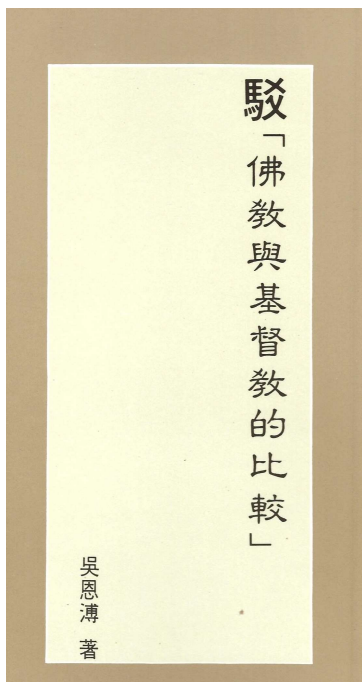 駁「佛教與基督教的比較」
吳恩溥 著